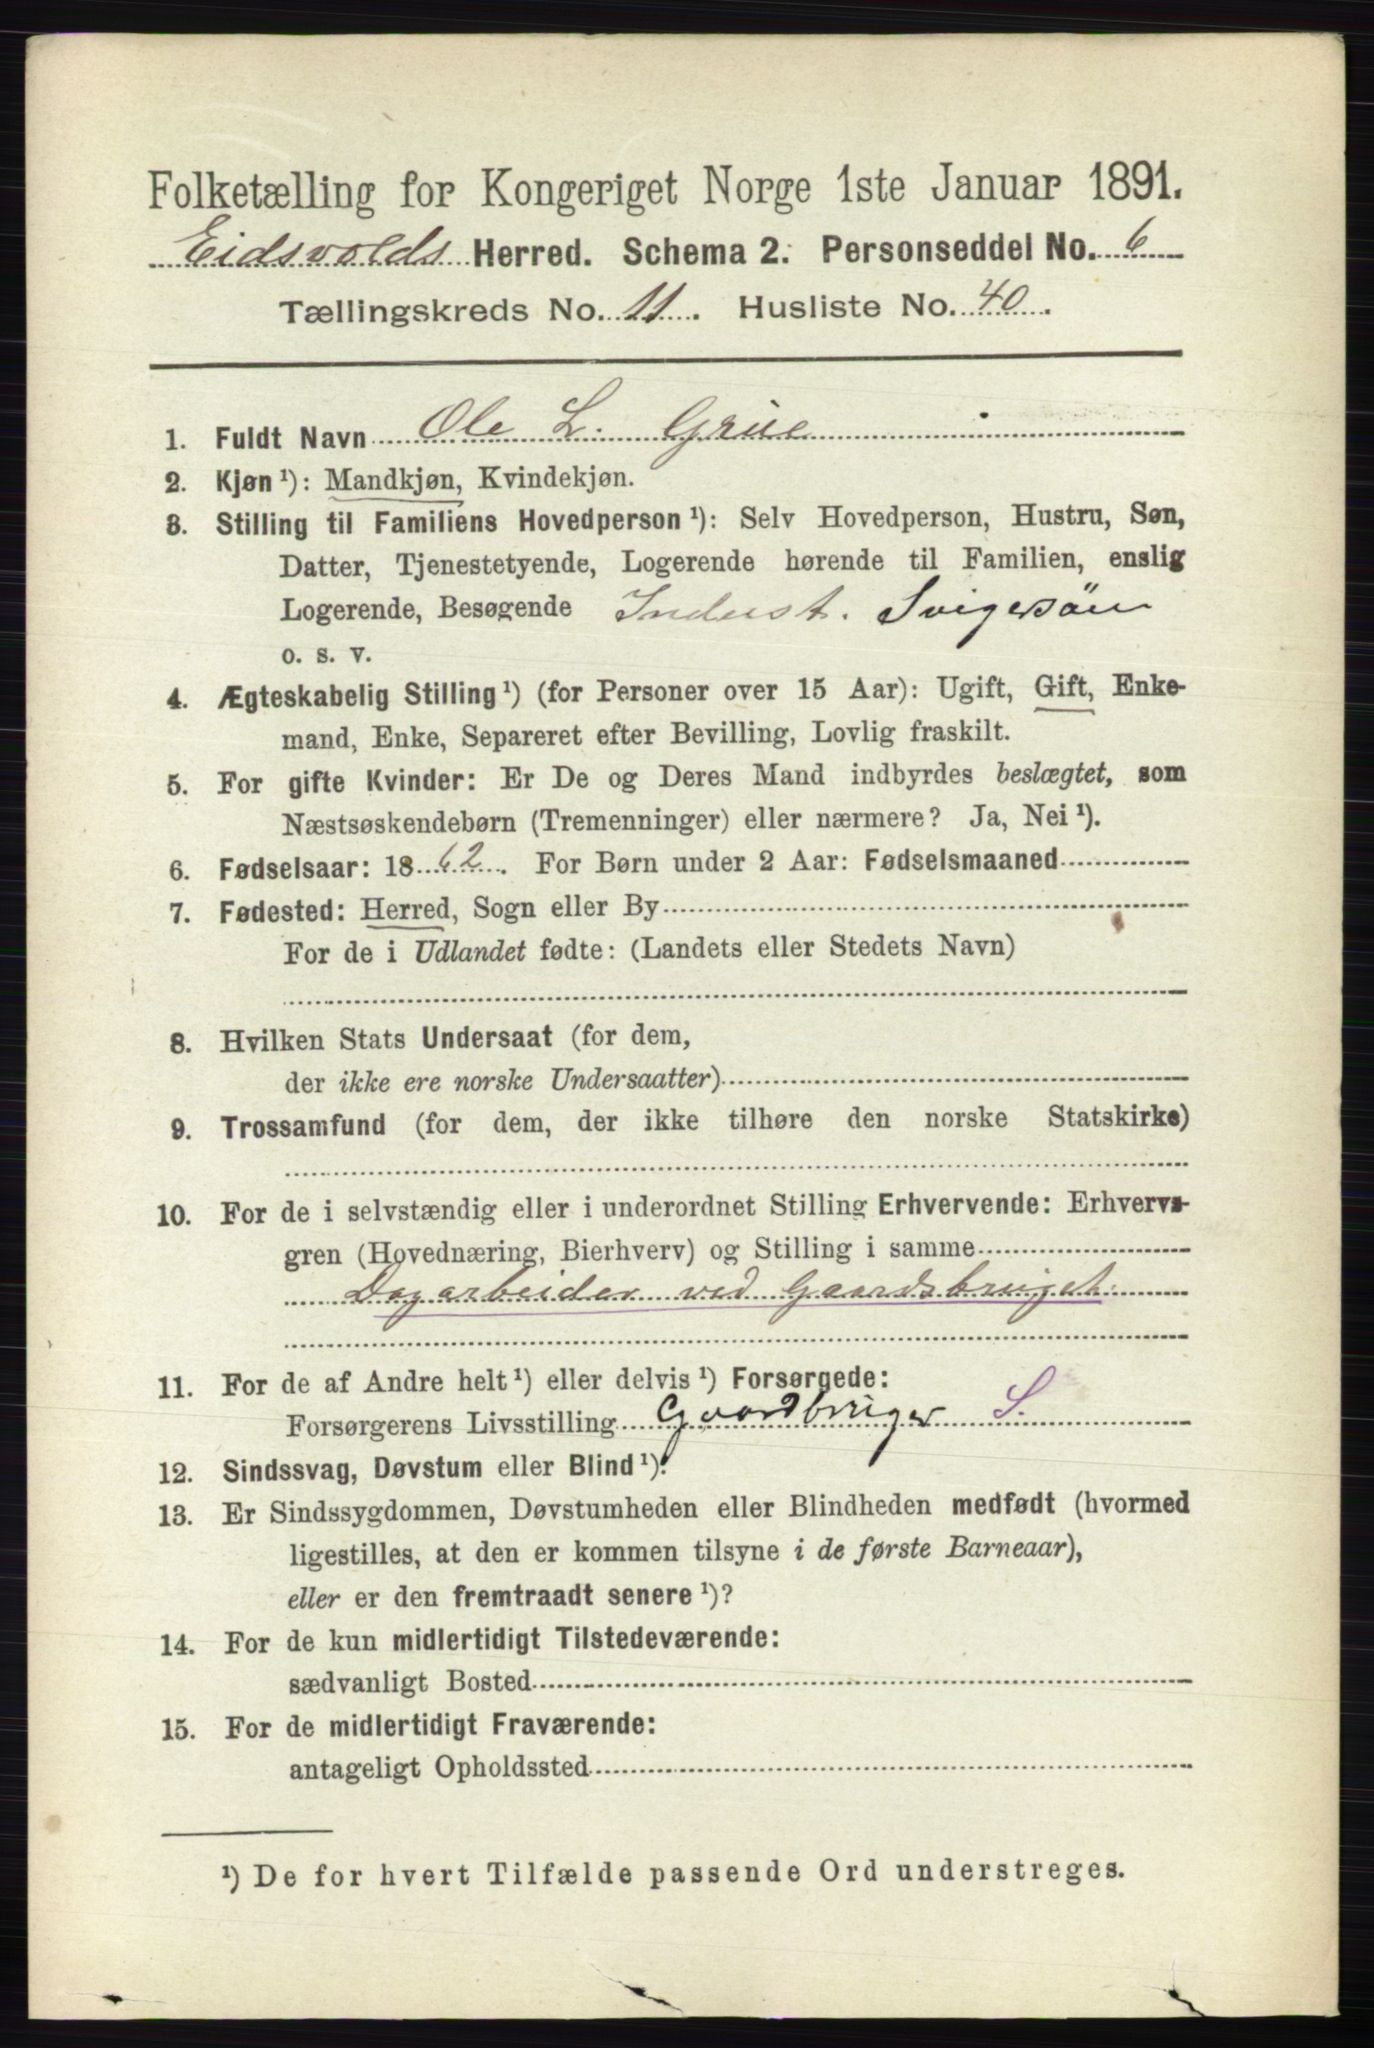 Folketælling for Kongeriget Norge 1ste Januar 1891.
Eidsvolds Herred. Schema 2. Personseddel No. 6
Tællingskreds No. 11. Husliste No. 40.
1. Fuldt Navn Ole L. Grue
2. Kjøn ¹): Mandkjøn, Kvindekjøn.
3. Stilling til Familiens Hovedperson ¹): Selv Hovedperson, Hustru, Søn,
Datter, Tjenestetyende, Logerende hørende til Familien, enslig
Logerende, Besøgende Inderst. Svigersøn
o. s. v.
4. Ægteskabelig Stilling ¹) (for Personer over 15 Aar): Ugift, Gift, Enke-
mand, Enke, Separeret efter Bevilling, Lovlig fraskilt.
5. For gifte Kvinder: Er De og Deres Mand indbyrdes beslægtet, som
Næstsøskendebørn (Tremenninger) eller nærmere? Ja, Nei ¹).
6. Fødselsaar: 1862. For Børn under 2 Aar: Fødselsmaaned
7. Fødested: Herred, Sogn eller By
For de i Udlandet fødte: (Landets eller Stedets Navn)
8. Hvilken Stats Undersaat (for dem,
der ikke ere norske Undersaatter)
9. Trossamfund (for dem, der ikke tilhøre den norske Statskirke)
10. For de i selvstændig eller i underordnet Stilling Erhvervende: Erhvervs-
gren (Hovednæring, Bierhverv) og Stilling i samme
Dagarbeider ved Gaardsbruget.
11. For de af Andre helt ¹) eller delvis ¹) Forsørgede:
Forsørgerens Livsstilling Gaardbruger S.
12. Sindssvag, Døvstum eller Blind ¹).
13. Er Sindssygdommen, Døvstumheden eller Blindheden medfødt (hvormed
ligestilles, at den er kommen tilsyne i de første Barneaar),
eller er den fremtraadt senere ¹)?
14. For de kun midlertidigt Tilstedeværende:
sædvanligt Bosted
15. For de midlertidigt Fraværende:
antageligt Opholdssted
¹) De for hvert Tilfælde passende Ord understreges.